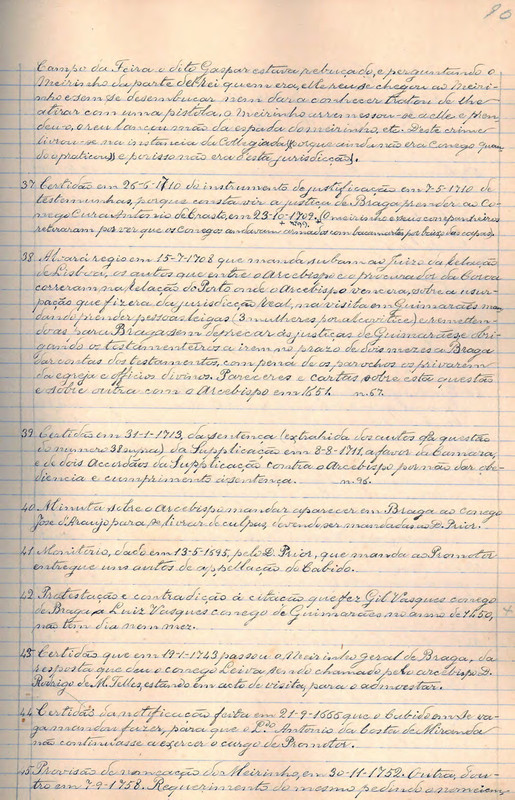 80
Campo da Feira o dito Gaspar estava rebuçado, e perguntando o
Meirinho da parte del Rei quem era, elle reu se chegou ao Meiri-
nho e sem se desembuçar nem dar a conhecer tratou de lhe
atirar com uma pistola, o Meirinho arremessou-se a elle e pren-
deu-o, o reu lançou mão da espada do meirinho, etc. Deste crime
livrou-se na instancia da Collegiada (porque ainda não era Conego quan-
do o praticou) e por isso não era desta jurisdicção).
37 Certidão em 26-5-1710 do instrumento de justificação em 7-5-1710 de
testemunhas, porque consta vir a justiça de Braga prender ao Co-
nego Cura Antonio de Crasto, em 23-10-1709. (O meirinho e seus companheiros
retiraram por ver que os Conegos andavam armados com bacamartes por baixo das capas).
38 Alvará regio em 15-7-1708 que manda subam ao Juizo da Relação
de Lisboa, os autos que entre o Arcebispo e o procurador da Coroa
correram na Relação do Porto onde o Arcebispo vencera, sobre a usur-
pação que fizera da jurisdicção Real, na visita em Guimarães man-
dando prender pessoas leigas (3 mulheres por alcovitice) e remetten-
do as para Braga sem deprecar ás justiças de Guimarães e obri-
gando os testamenteiros a irem no prazo de dois mezes a Braga
dar contas dos testamentos, com pena de os parochos os privarem
da egreja e officios divinos. Pareceres e cartas sobre esta questão
e sobre outra com o Arcebispo em 1651. n. 67.
39 Certidão em 31-1-1713, da sentença (extrahida dos autos da questão
do numero 38 supra) da Supplicação em 8-8-1711, a favor da Camara,
e de dois Accordãos da Supplicação contra o Arcebispo por não dar obe-
diencia e cumprimento á sentença. n. 96.
40 Minuta sobre o Arcebispo mandar aparecer em Braga ao Conego
José d'Araujo para se livrar de culpas, devendo ser mandadas ao D. Prior.
41 Monitorio, dado em 13-5-1595, pelo D. Prior, que manda ao Promotor
entregue uns autos de appellação do Cabido.
42 Protestação e contradição á citação que fez Gil Vasques conego
de Braga, a Luiz Vasques conego de Guimarães no anno de 1450,
não tem dia nem mez.
43 Certidão que em 19-1-1743 passou o Meirinho geral de Braga, da
resposta que deu o conego Leiva, sendo chamado pelo arcebispo D.
Rodrigo de M. Telles, estando em acto de visita, para o admoestar.
44 Certidão da notificação feita em 21-9-1666 que o Cabido em Sé va-
ga mandou fazer, para que o L.do Antonio da Costa de Miranda
não continuasse a exercer o cargo de Promotor.
45 Provisão da nomeação do Meirinho, em 30-11-1752. Outra, d'ou-
tro em 7-9-1758. Requerimento do mesmo pedindo a nomeiem,